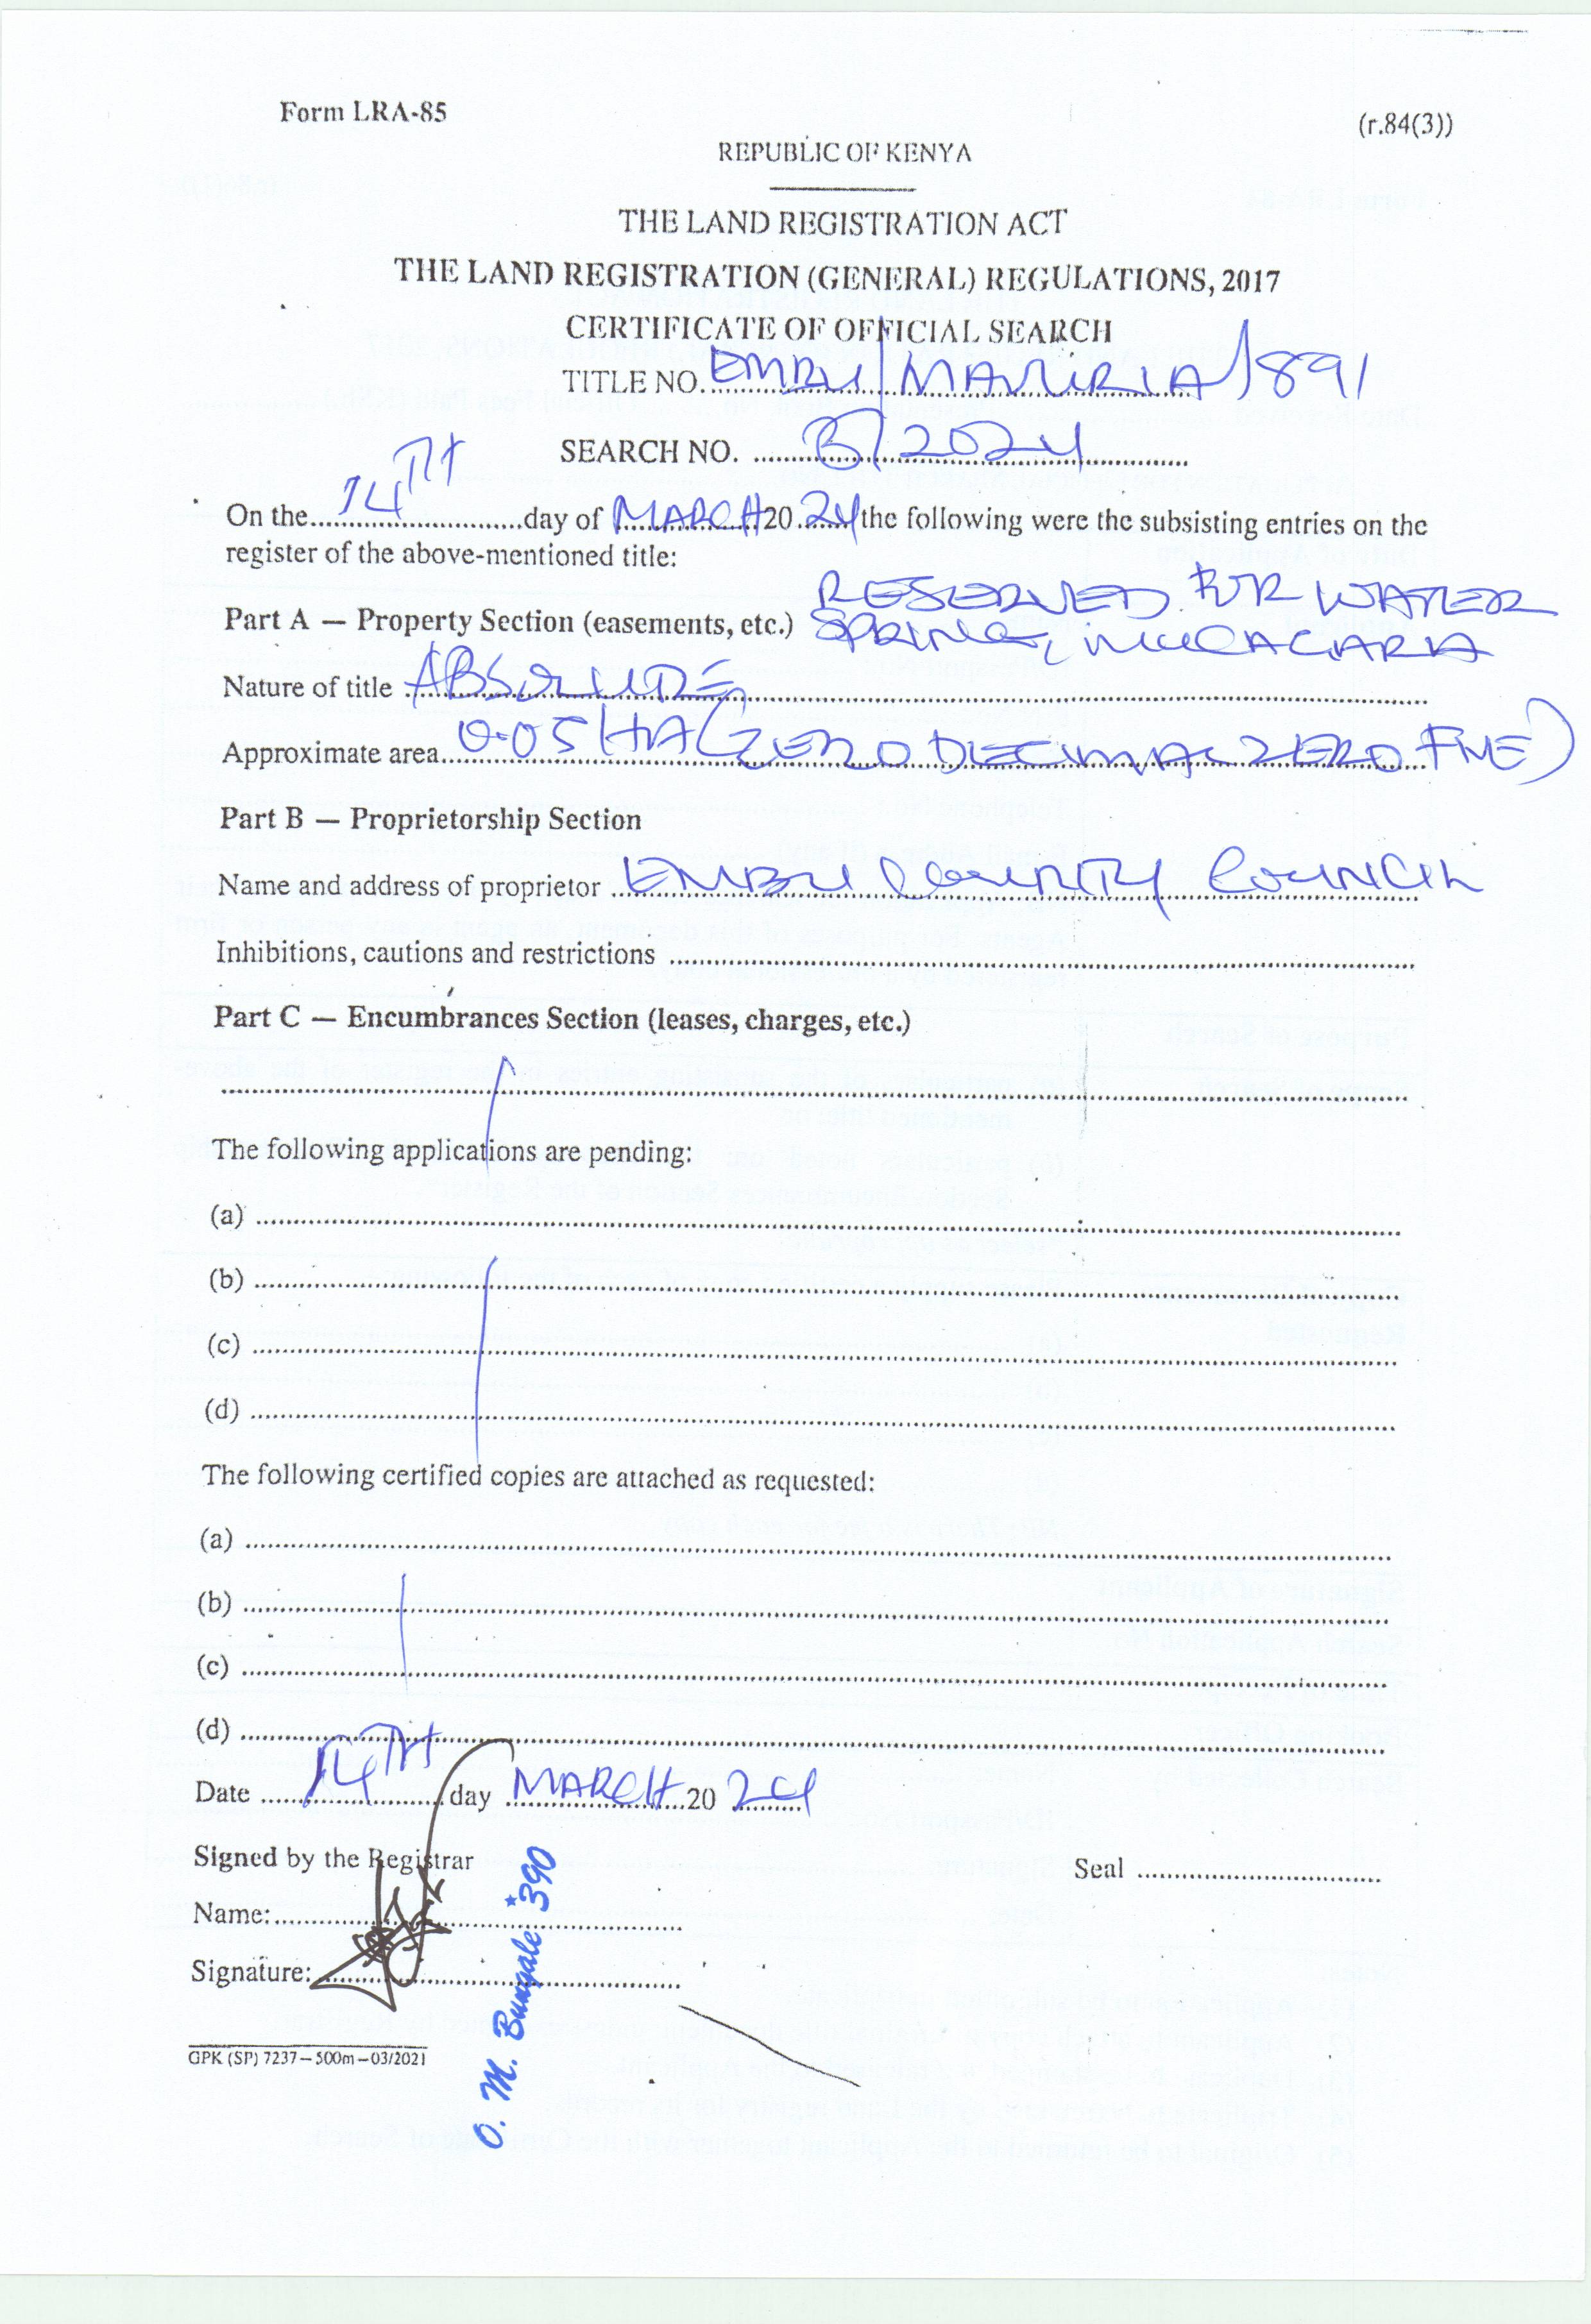 Form LRA-85
(r.84(3))
REPUBLIC OF KENYA
THE LAND REGISTRATION ACT
THE LAND REGISTRATION (GENERAL) REGULATIONS, 2017
CERTIFICATE OF OFFICIAL SEARCH
TITLE NO. EMBU/MAVURIA/891
SEARCH NO. B/2024
On the 14TH day of MARCH 20 24 the following were the subsisting entries on the
register of the above-mentioned title:
Part A — Property Section (easements, etc.) RESERVED FOR WATER
SPRING,
Nature of title ABSOLUTE
Approximate area 0.05 HA (ZERO DECIMAL ZERO FIVE)
Part B — Proprietorship Section
Name and address of proprietor EMBU COUNTY COUNCIL
Inhibitions, cautions and restrictions
Part C — Encumbrances Section (leases, charges, etc.)
The following applications are pending:
(a)
(b)
(c)
(d)
The following certified copies are attached as requested:
(a)
(b)
(c)
(d)
Date 14TH day MARCH 20 24
Signed by the Registrar
Seal
Name:
Signature:
O. M. Bungale *390
GPK (SP) 7237—500m—03/2021